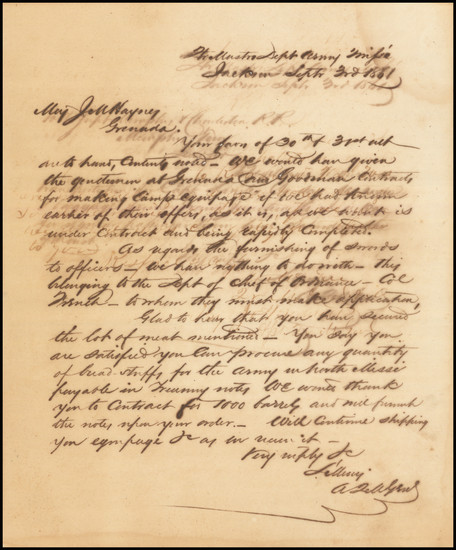 Qr Masters Dept Army
Jackson Septr 3rd 1861
Maj J M Haynes
Grenada.
Your favrs of 30th & 31st ult
are to hand, Contents noted - We would have given
the gentlemen at Grenada and Goodman Contracts
for making Camp equipage if we had known
earlier of their offers, as it is, all we want is
under Contract and being rapidly Completed.
As regards the furnishing of swords
to officers - we have nothing to do with - this
belonging to the Dept of Chief of Ordnance - Col
French - to whom they must make application,
Glad to hear that you have secured
the lot of meat mentioned - You say you
are satisfied you can procure any quantity
of bread stuffs for the army in North Missi
payable in Treasury notes We would thank
you to Contract for 1000 barrels and will furnish
the notes upon your order - Will Continue shipping
you equipage &c as we receive it -
Very respty &c
A Q M Genl